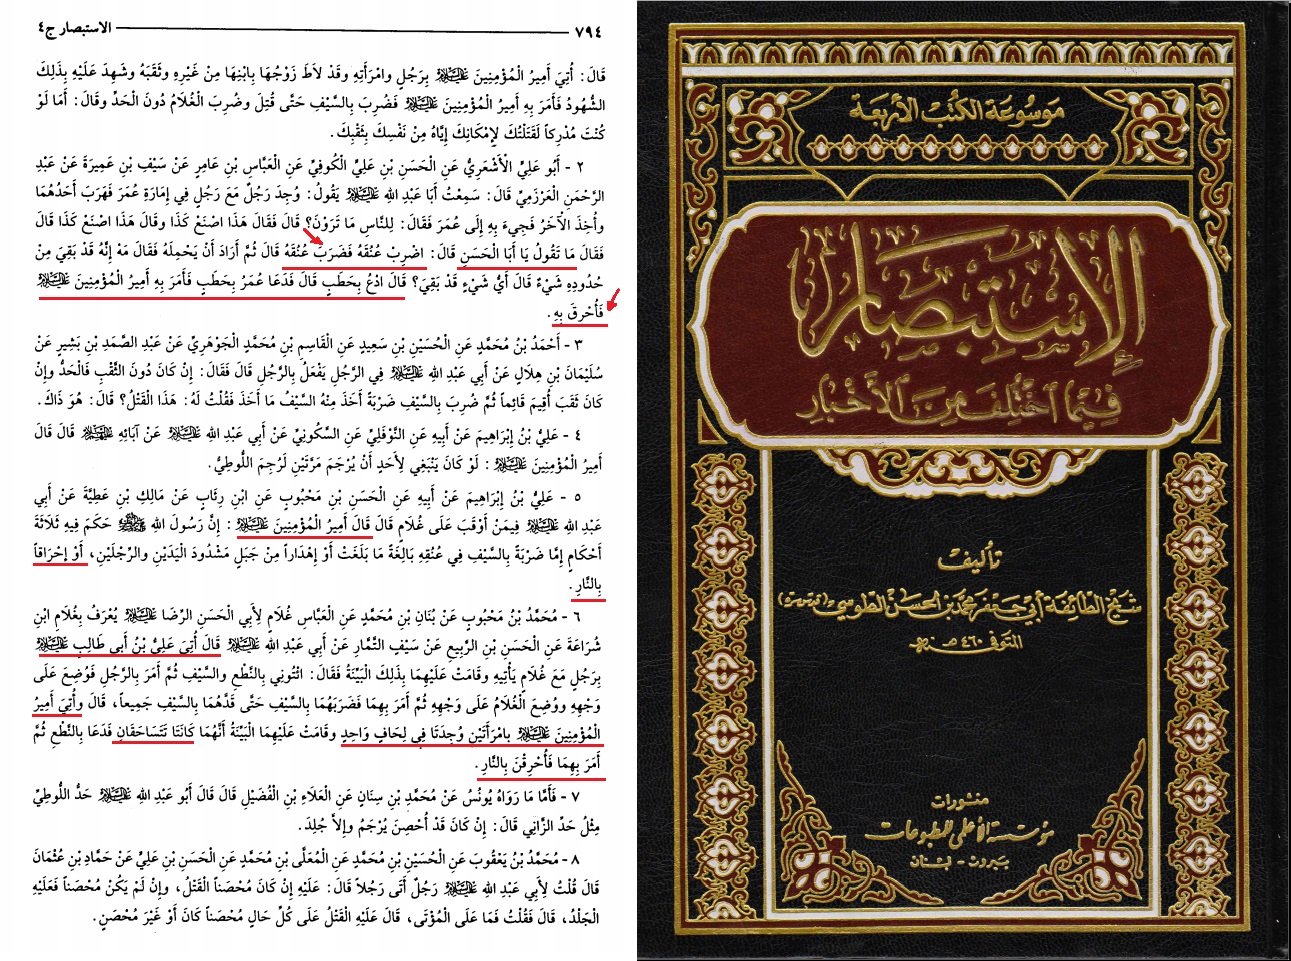 ٧٩٤ الاستبصار ج٤
قَالَ: أُتِيَ أَمِيرُ الْمُؤْمِنِينَ عَلَيْهِ السَّلَام بِرَجُلٍ وامْرَأَتِهِ وقَدْ لاَطَ زَوْجُهَا بِابْنِهَا مِنْ غَيْرِهِ وثَقَبَهُ وشَهِدَ عَلَيْهِ بِذَلِكَ
الشُّهُودُ فَأَمَرَ بِهِ أَمِيرُ الْمُؤْمِنِينَ عَلَيْهِ السَّلَام فَضُرِبَ بِالسَّيْفِ حَتَّى قُتِلَ وضُرِبَ الْغُلَامُ دُونَ الْحَدِّ وقَالَ: أَمَا لَوْ
كُنْتَ مُدْرِكاً لَقَتَلْتُكَ لِإِمْكَانِكَ إِيَّاهُ مِنْ نَفْسِكَ بِثَقْبِكَ.
٢ - أَبُو عَلِيٍّ الْأَشْعَرِيُّ عَنِ الْحَسَنِ بْنِ عَلِيٍّ الْكُوفِيِّ عَنِ الْعَبَّاسِ بْنِ عَامِرٍ عَنْ سَيْفِ بْنِ عَمِيرَةَ عَنْ عَبْدِ
الرَّحْمَنِ الْعَرْزَمِيِّ قَالَ: سَمِعْتُ أَبَا عَبْدِ اللهِ عَلَيْهِ السَّلَام يَقُولُ: وُجِدَ رَجُلٌ مَعَ رَجُلٍ فِي إِمَارَةِ عُمَرَ فَهَرَبَ أَحَدُهُمَا
وأُخِذَ الْآخَرُ فَجِيءَ بِهِ إِلَى عُمَرَ فَقَالَ: لِلنَّاسِ مَا تَرَوْنَ؟ قَالَ فَقَالَ هَذَا اصْنَعْ كَذَا وقَالَ هَذَا اصْنَعْ كَذَا قَالَ
فَقَالَ مَا تَقُولُ يَا أَبَا الْحَسَنِ قَالَ: اضْرِبْ عُنُقَهُ فَضَرَبَ عُنُقَهُ قَالَ ثُمَّ أَرَادَ أَنْ يَحْمِلَهُ فَقَالَ مَهْ إِنَّهُ قَدْ بَقِيَ مِنْ
حُدُودِهِ شَيْءٌ قَالَ أَيُّ شَيْءٍ قَدْ بَقِيَ؟ قَالَ ادْعُ بِحَطَبٍ قَالَ فَدَعَا عُمَرُ بِحَطَبٍ فَأَمَرَ بِهِ أَمِيرُ الْمُؤْمِنِينَ عَلَيْهِ السَّلَام
فَأُحْرِقَ بِهِ.
٣ - أَحْمَدُ بْنُ مُحَمَّدٍ عَنِ الْحُسَيْنِ بْنِ سَعِيدٍ عَنِ الْقَاسِمِ بْنِ مُحَمَّدٍ الْجَوْهَرِيِّ عَنْ عَبْدِ الصَّمَدِ بْنِ بَشِيرٍ عَنْ
سُلَيْمَانَ بْنِ هِلَالٍ عَنْ أَبِي عَبْدِ اللهِ عَلَيْهِ السَّلَام فِي الرَّجُلِ يَفْعَلُ بِالرَّجُلِ قَالَ فَقَالَ: إِنْ كَانَ دُونَ الثَّقْبِ فَالْحَدُّ وإِنْ
كَانَ ثَقَبَ أُقِيمَ قَائِماً ثُمَّ ضُرِبَ بِالسَّيْفِ ضَرْبَةً أَخَذَ مِنْهُ السَّيْفُ مَا أَخَذَ فَقُلْتُ لَهُ: هَذَا الْقَتْلُ؟ قَالَ: هُوَ ذَاكَ.
٤ - عَلِيُّ بْنُ إِبْرَاهِيمَ عَنْ أَبِيهِ عَنِ النَّوْفَلِيِّ عَنِ السَّكُونِيِّ عَنْ أَبِي عَبْدِ اللهِ عَلَيْهِ السَّلَام عَنْ آبَائِهِ عَلَيْهِمُ السَّلَام قَالَ قَالَ
أَمِيرُ الْمُؤْمِنِينَ عَلَيْهِ السَّلَام: لَوْ كَانَ يَنْبَغِي لِأَحَدٍ أَنْ يُرْجَمَ مَرَّتَيْنِ لَرُجِمَ اللُّوطِيُّ.
٥ - عَلِيُّ بْنُ إِبْرَاهِيمَ عَنْ أَبِيهِ عَنِ الْحَسَنِ بْنِ مَحْبُوبٍ عَنِ ابْنِ رِئَابٍ عَنْ مَالِكِ بْنِ عَطِيَّةَ عَنْ أَبِي
عَبْدِ اللهِ عَلَيْهِ السَّلَام فِيمَنْ أَوْقَبَ عَلَى غُلَامٍ قَالَ قَالَ أَمِيرُ الْمُؤْمِنِينَ عَلَيْهِ السَّلَام: إِنَّ رَسُولَ اللهِ ﷺ حَكَمَ فِيهِ ثَلَاثَةَ
أَحْكَامٍ إِمَّا ضَرْبَةً بِالسَّيْفِ فِي عُنُقِهِ بَالِغَةً مَا بَلَغَتْ أَوْ إِهْدَاراً مِنْ جَبَلٍ مَشْدُودَ الْيَدَيْنِ والرِّجْلَيْنِ، أَوْ إِحْرَاقاً
بِالنَّارِ.
٦ - مُحَمَّدُ بْنُ مَحْبُوبٍ عَنْ بُنَانِ بْنِ مُحَمَّدٍ عَنِ الْعَبَّاسِ غُلَامٍ لِأَبِي الْحَسَنِ الرِّضَا عَلَيْهِ السَّلَام يُعْرَفُ بِغُلَامِ ابْنِ
شُرَاعَةَ عَنِ الْحَسَنِ بْنِ الرَّبِيعِ عَنْ سَيْفٍ التَّمَّارِ عَنْ أَبِي عَبْدِ اللهِ عَلَيْهِ السَّلَام قَالَ أُتِيَ عَلِيُّ بْنُ أَبِي طَالِبٍ عَلَيْهِ السَّلَام
بِرَجُلٍ مَعَ غُلَامٍ يَأْتِيهِ وقَامَتْ عَلَيْهِمَا بِذَلِكَ الْبَيِّنَةُ فَقَالَ: ائْتُونِي بِالنَّطْعِ والسَّيْفِ ثُمَّ أَمَرَ بِالرَّجُلِ فَوُضِعَ عَلَى
وَجْهِهِ ووُضِعَ الْغُلَامُ عَلَى وَجْهِهِ ثُمَّ أَمَرَ بِهِمَا فَضَرَبَهُمَا بِالسَّيْفِ حَتَّى قَدَّهُمَا بِالسَّيْفِ جَمِيعاً، قَالَ وأُتِيَ أَمِيرُ
الْمُؤْمِنِينَ عَلَيْهِ السَّلَام بِامْرَأَتَيْنِ وُجِدَتَا فِي لِحَافٍ وَاحِدٍ وقَامَتْ عَلَيْهِمَا الْبَيِّنَةُ أَنَّهُمَا كَانَتَا تَتَسَاحَقَانِ فَدَعَا بِالنَّطْعِ ثُمَّ
أَمَرَ بِهِمَا فَأُحْرِقْنَ بِالنَّارِ.
٧ - فَأَمَّا مَا رَوَاهُ يُونُسُ عَنْ مُحَمَّدِ بْنِ سِنَانٍ عَنِ الْعَلَاءِ بْنِ الْفُضَيْلِ قَالَ قَالَ أَبُو عَبْدِ اللهِ عَلَيْهِ السَّلَام حَدُّ اللُّوطِيِّ
مِثْلُ حَدِّ الزَّانِي قَالَ: إِنْ كَانَ قَدْ أُحْصِنَ يُرْجَمُ وإِلاَّ جُلِدَ.
٨ - مُحَمَّدُ بْنُ يَعْقُوبَ عَنِ الْحُسَيْنِ بْنِ مُحَمَّدٍ عَنِ الْمُعَلَّى بْنِ مُحَمَّدٍ عَنِ الْحَسَنِ بْنِ عَلِيٍّ عَنْ حَمَّادِ بْنِ عُثْمَانَ
قَالَ قُلْتُ لِأَبِي عَبْدِ اللهِ عَلَيْهِ السَّلَام رَجُلٌ أَتَى رَجُلاً قَالَ: عَلَيْهِ إِنْ كَانَ مُحْصَناً الْقَتْلُ، وإِنْ لَمْ يَكُنْ مُحْصَناً فَعَلَيْهِ
الْجَلْدُ، قَالَ فَقُلْتُ فَمَا عَلَى الْمُؤْتَى، قَالَ عَلَيْهِ الْقَتْلُ عَلَى كُلِّ حَالٍ مُحْصَناً كَانَ أَوْ غَيْرَ مُحْصَنٍ.
مَوسُوعَة الكتُب الأربعَة
الإستبصار
فيما اختلف من الأخبار
تأليف
شيخ الطائفة أبي جعفر محمد بن الحسن الطوسي (قدس سره)
المتوفى ٤٦٠ هـ
منشورات
مؤسسة الأعلمي للمطبوعات
بيروت - لبنان